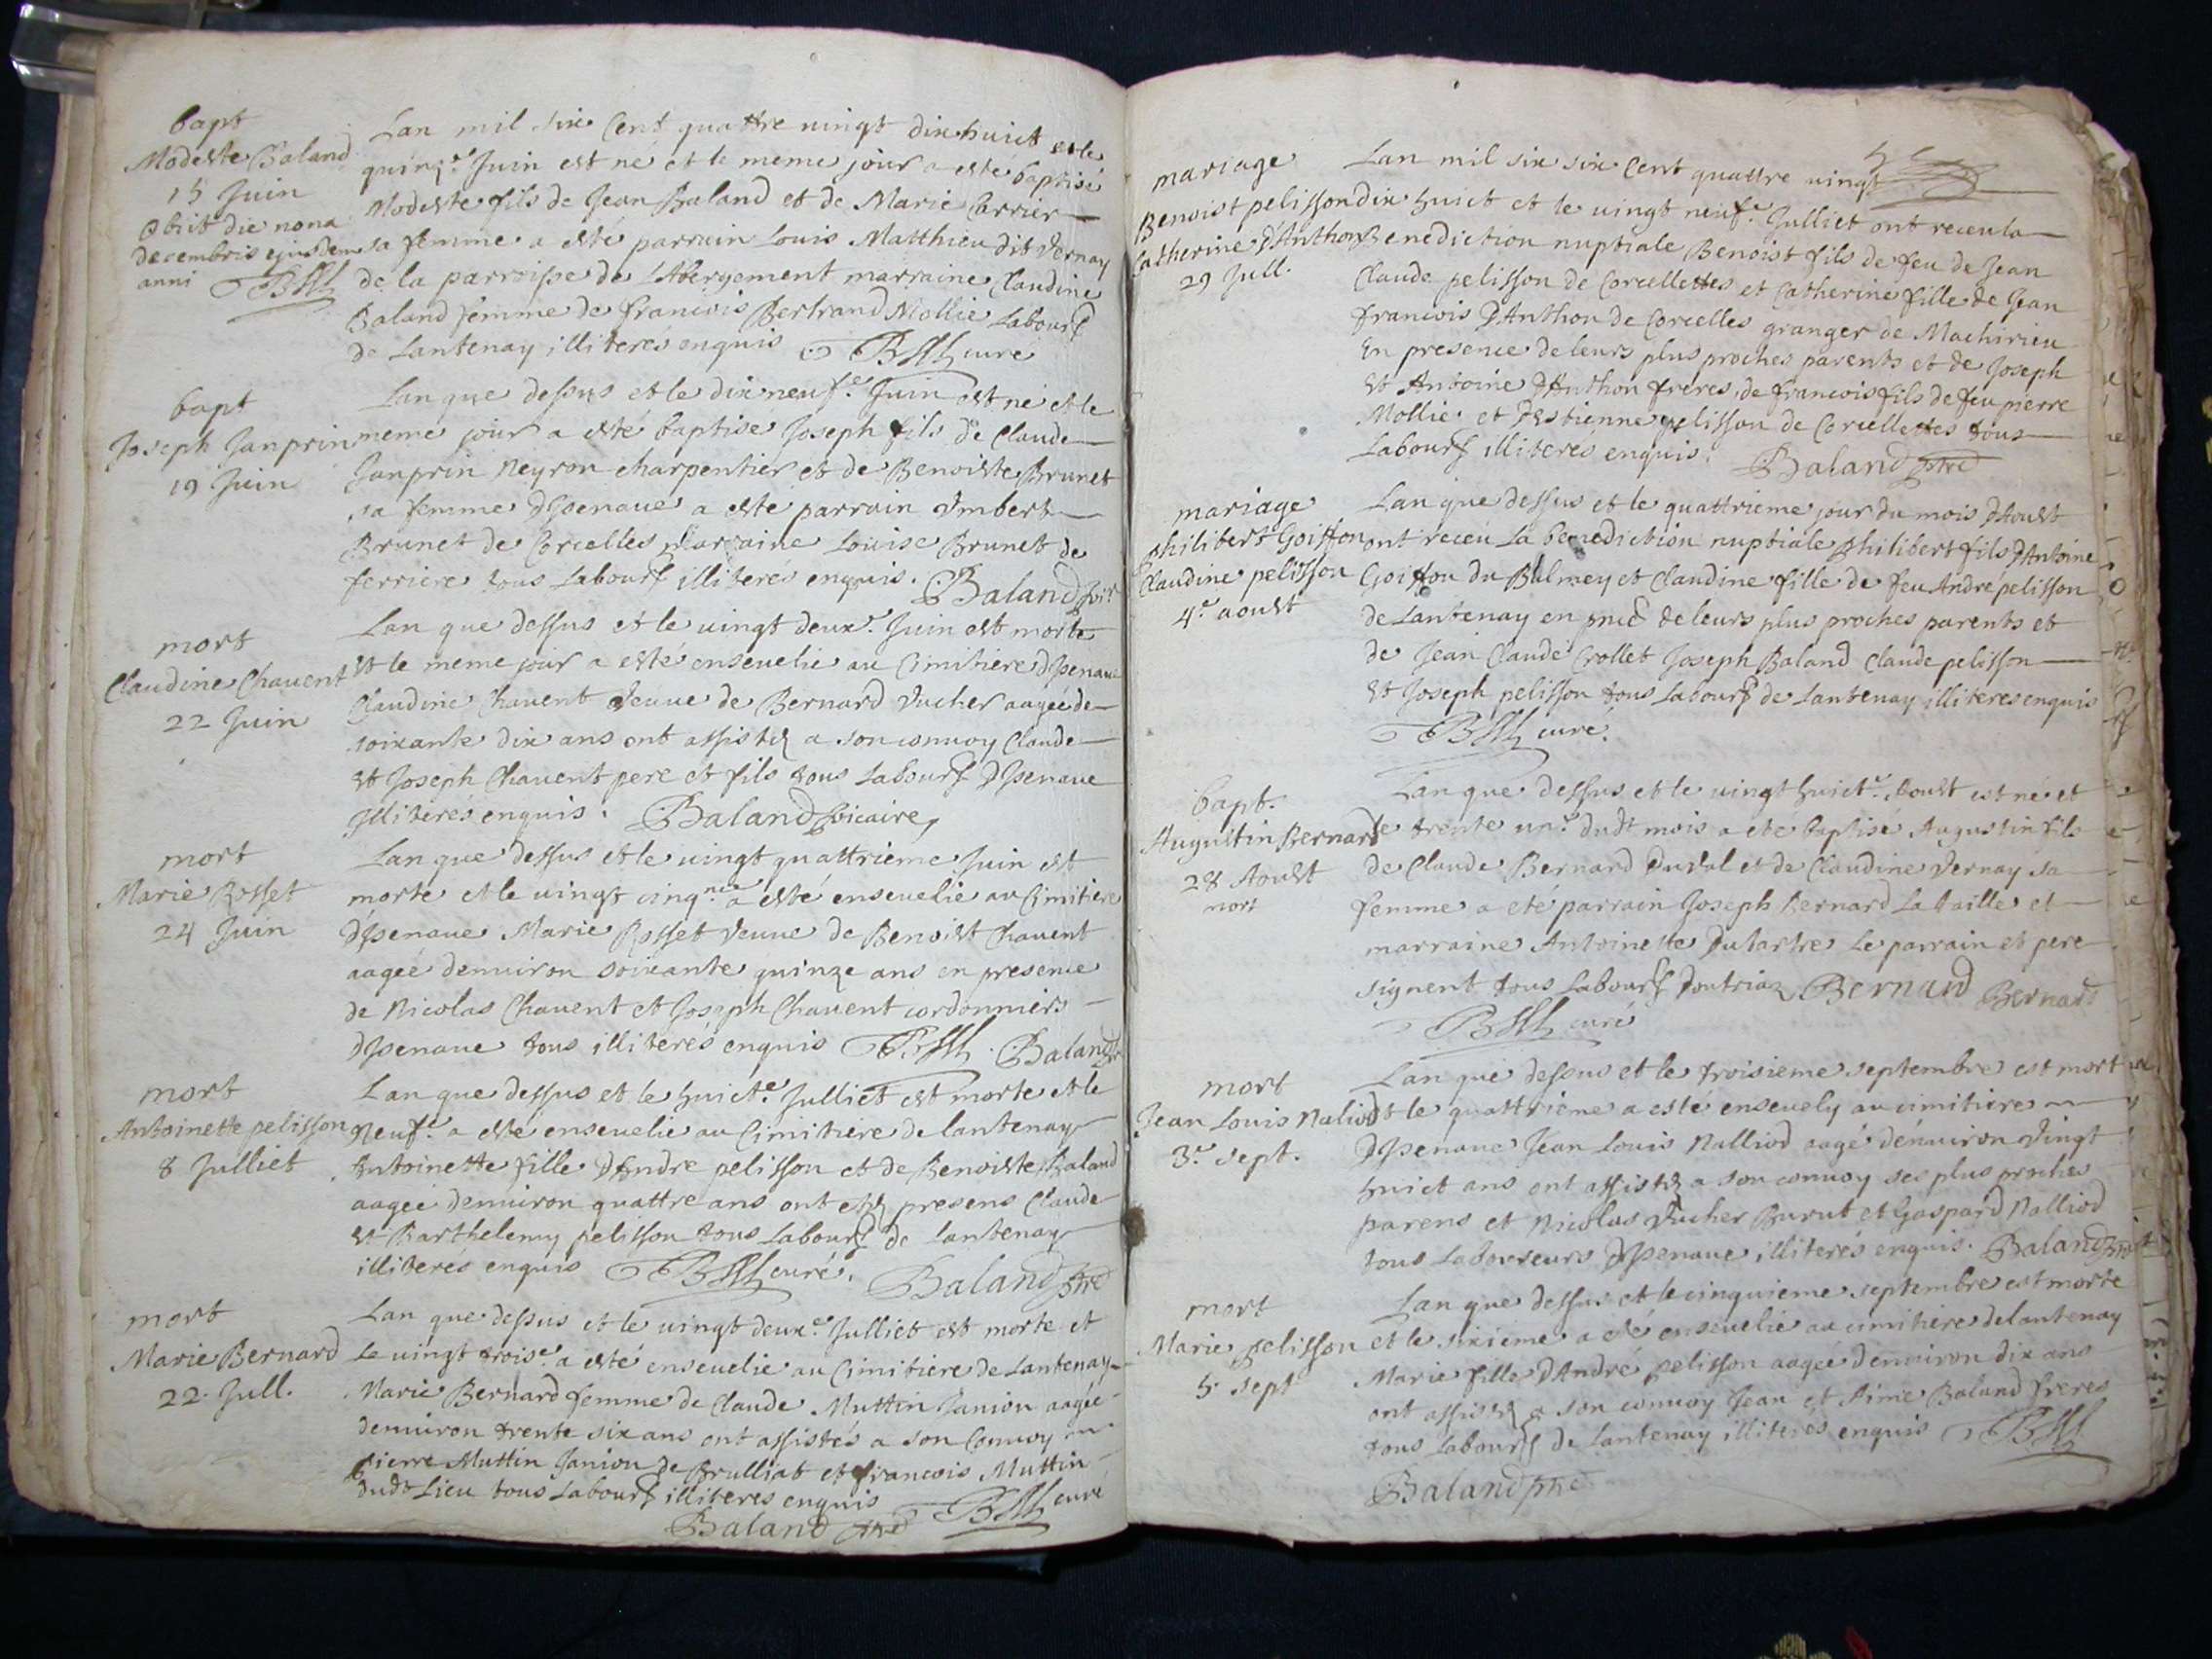 bapt
Modeste Baland
15 Juin
Obiit die nona
decembris ejusdem
anni
Lan mil six Cent quattre uingt dix huict et le
quinz.e Juin est né et le meme jour a esté baptisé
Modeste fils de Jean Baland et de Marie Carrier
sa femme a esté parrain Louis Matthieu dit Vernay
de la parroisse de L'Abergement marraine Claudine
Baland femme de francois Bertrand Mollie Labours
de Lantenay illiterés enquis curé
bapt
Joseph Janprin
19 Juin
Lan que dessus et le dix neuf.e Juin est né et le
meme jour a esté baptisé Joseph fils de Claude
Janprin Neyron charpentier et de Benoiste Brunet
sa femme d'Isenaue a esté parrain Imbert
Brunet de Corcelles Marraine Louise Brunet de
ferriere tous Labours illiterés enquis. Baland
mort
Claudine Chauent
22 Juin
Lan que dessus et le uingt deux.e Juin est morte
Et le meme jour a esté enseuelie au Cimitiere d'Isenaue
Claudine Chauent Veuue de Bernard Vucher aagée de
soixante dix ans ont assistez a son conuoy Claude
Et Joseph Chauent pere et fils tous Labours d'Isenaue
Illiterés enquis. Baland vicaire
mort
Marie Rosset
24 Juin
Lan que dessus et le uingt quattrieme Juin est
morte et le uingt cinq.me a esté enseuelie au Cimitiere
d'Isenaue Marie Rosset Veuue de Benoist Chauent
aagée denuiron soixante quinze ans en presence
de Nicolas Chauent et Joseph Chauent cordonniers
d'Isenaue tous illiterés enquis Baland
mort
Antoinette pelisson
8 Julliet
Lan que dessus et le huict.e Julliet est morte et le
Neuf.e a esté enseuelie au Cimitiere de lantenay
Antoinette fille d'Andre pelisson et de Benoiste Baland
aagée denuiron quattre ans ont etez presens Claude
Et Barthelemy pelisson tous Labours de Lantenay
illiterés enquis curé. Baland ptre
mort
Marie Bernard
22. Jull.
Lan que dessus et le uingt deux.e Julliet est morte et
Le uingt trois.e a esté enseuelie au Cimitiere de Lantenay
Marie Bernard femme de Claude Muttin Janiou aagée
denuiron trente six ans ont assistés a son Conuoy
pierre Muttin Janiou de Brulliat et francois Muttin
dudt Lieu tous Labours illiteres enquis curé
Baland ptre
mariage
Benoist pelisson
Catherine d'Anthon
29 Jull.
Lan mil six six Cent quattre uingt
dix huict et le uingt neuf.e Julliet ont receu la
Benediction nuptiale Benoist fils de feu de Jean
Claude pelisson de Corcellettes et Catherine fille de Jean
francois d'Anthon de Corcelles granger de Machirieu
En presence de leurs plus proches parents et de Joseph
Et Antoine d'Anthon freres, de francois fils de feu pierre
Mollie et d'Estienne pelisson de Corcellettes tous
Labours illiterés enquis. Baland ptre
mariage
philibert Goiffon
Claudine pelisson
4.e aoust
Lan que dessus et le quattrieme jour du mois d'Aoust
ont receu la benediction nuptiale philibert fils d'Antoine
Goiffon du Balmey et Claudine fille de feu André pelisson
de Lantenay en pnce de leurs plus proches parents et
de Jean Claude Crollet Joseph Baland Claude pelisson
Et Joseph pelisson tous Labours de Lantenay illiteres enquis
curé.
bapt.
Augustin Bernard
28 Aoust
mort
Lan que dessus et le uingt huict.e Aoust est né et
le trente un.e dudt mois a eté baptisé Augustin fils
de Claude Bernard Duval et de Claudine Vernay sa
femme a eté parrain Joseph Bernard La taille et
marraine Antoinette Dutartre Le parrain et pere
signent tous Labours doutriaz Bernard Bernard
curé
mort
Jean Louis Naliod
3.e sept.
Lan que dessus et le troisieme septembre est mort
Et le quattrieme a esté enseuely au cimitiere
d'Isenaue Jean Louis Nalliod aagé dénuiron Vingt
huict ans ont assistez a son conuoy ses plus proches
parens et Nicolas Vucher Burut et Gaspard Nalliod
tous Laboureurs d'Isenaue illiterés enquis. Baland
mort
Marie pelisson
5. sept
Lan que dessus et le cinquieme septembre est morte
et le sixieme a eté enseuelie au cimitiere de lantenay
Marie fille d'André pelisson aagée denuiron dix ans
ont assistez a son conuoy Jean et Aimé Baland freres
tous Labours de Lantenay illiteres enquis
Baland ptre